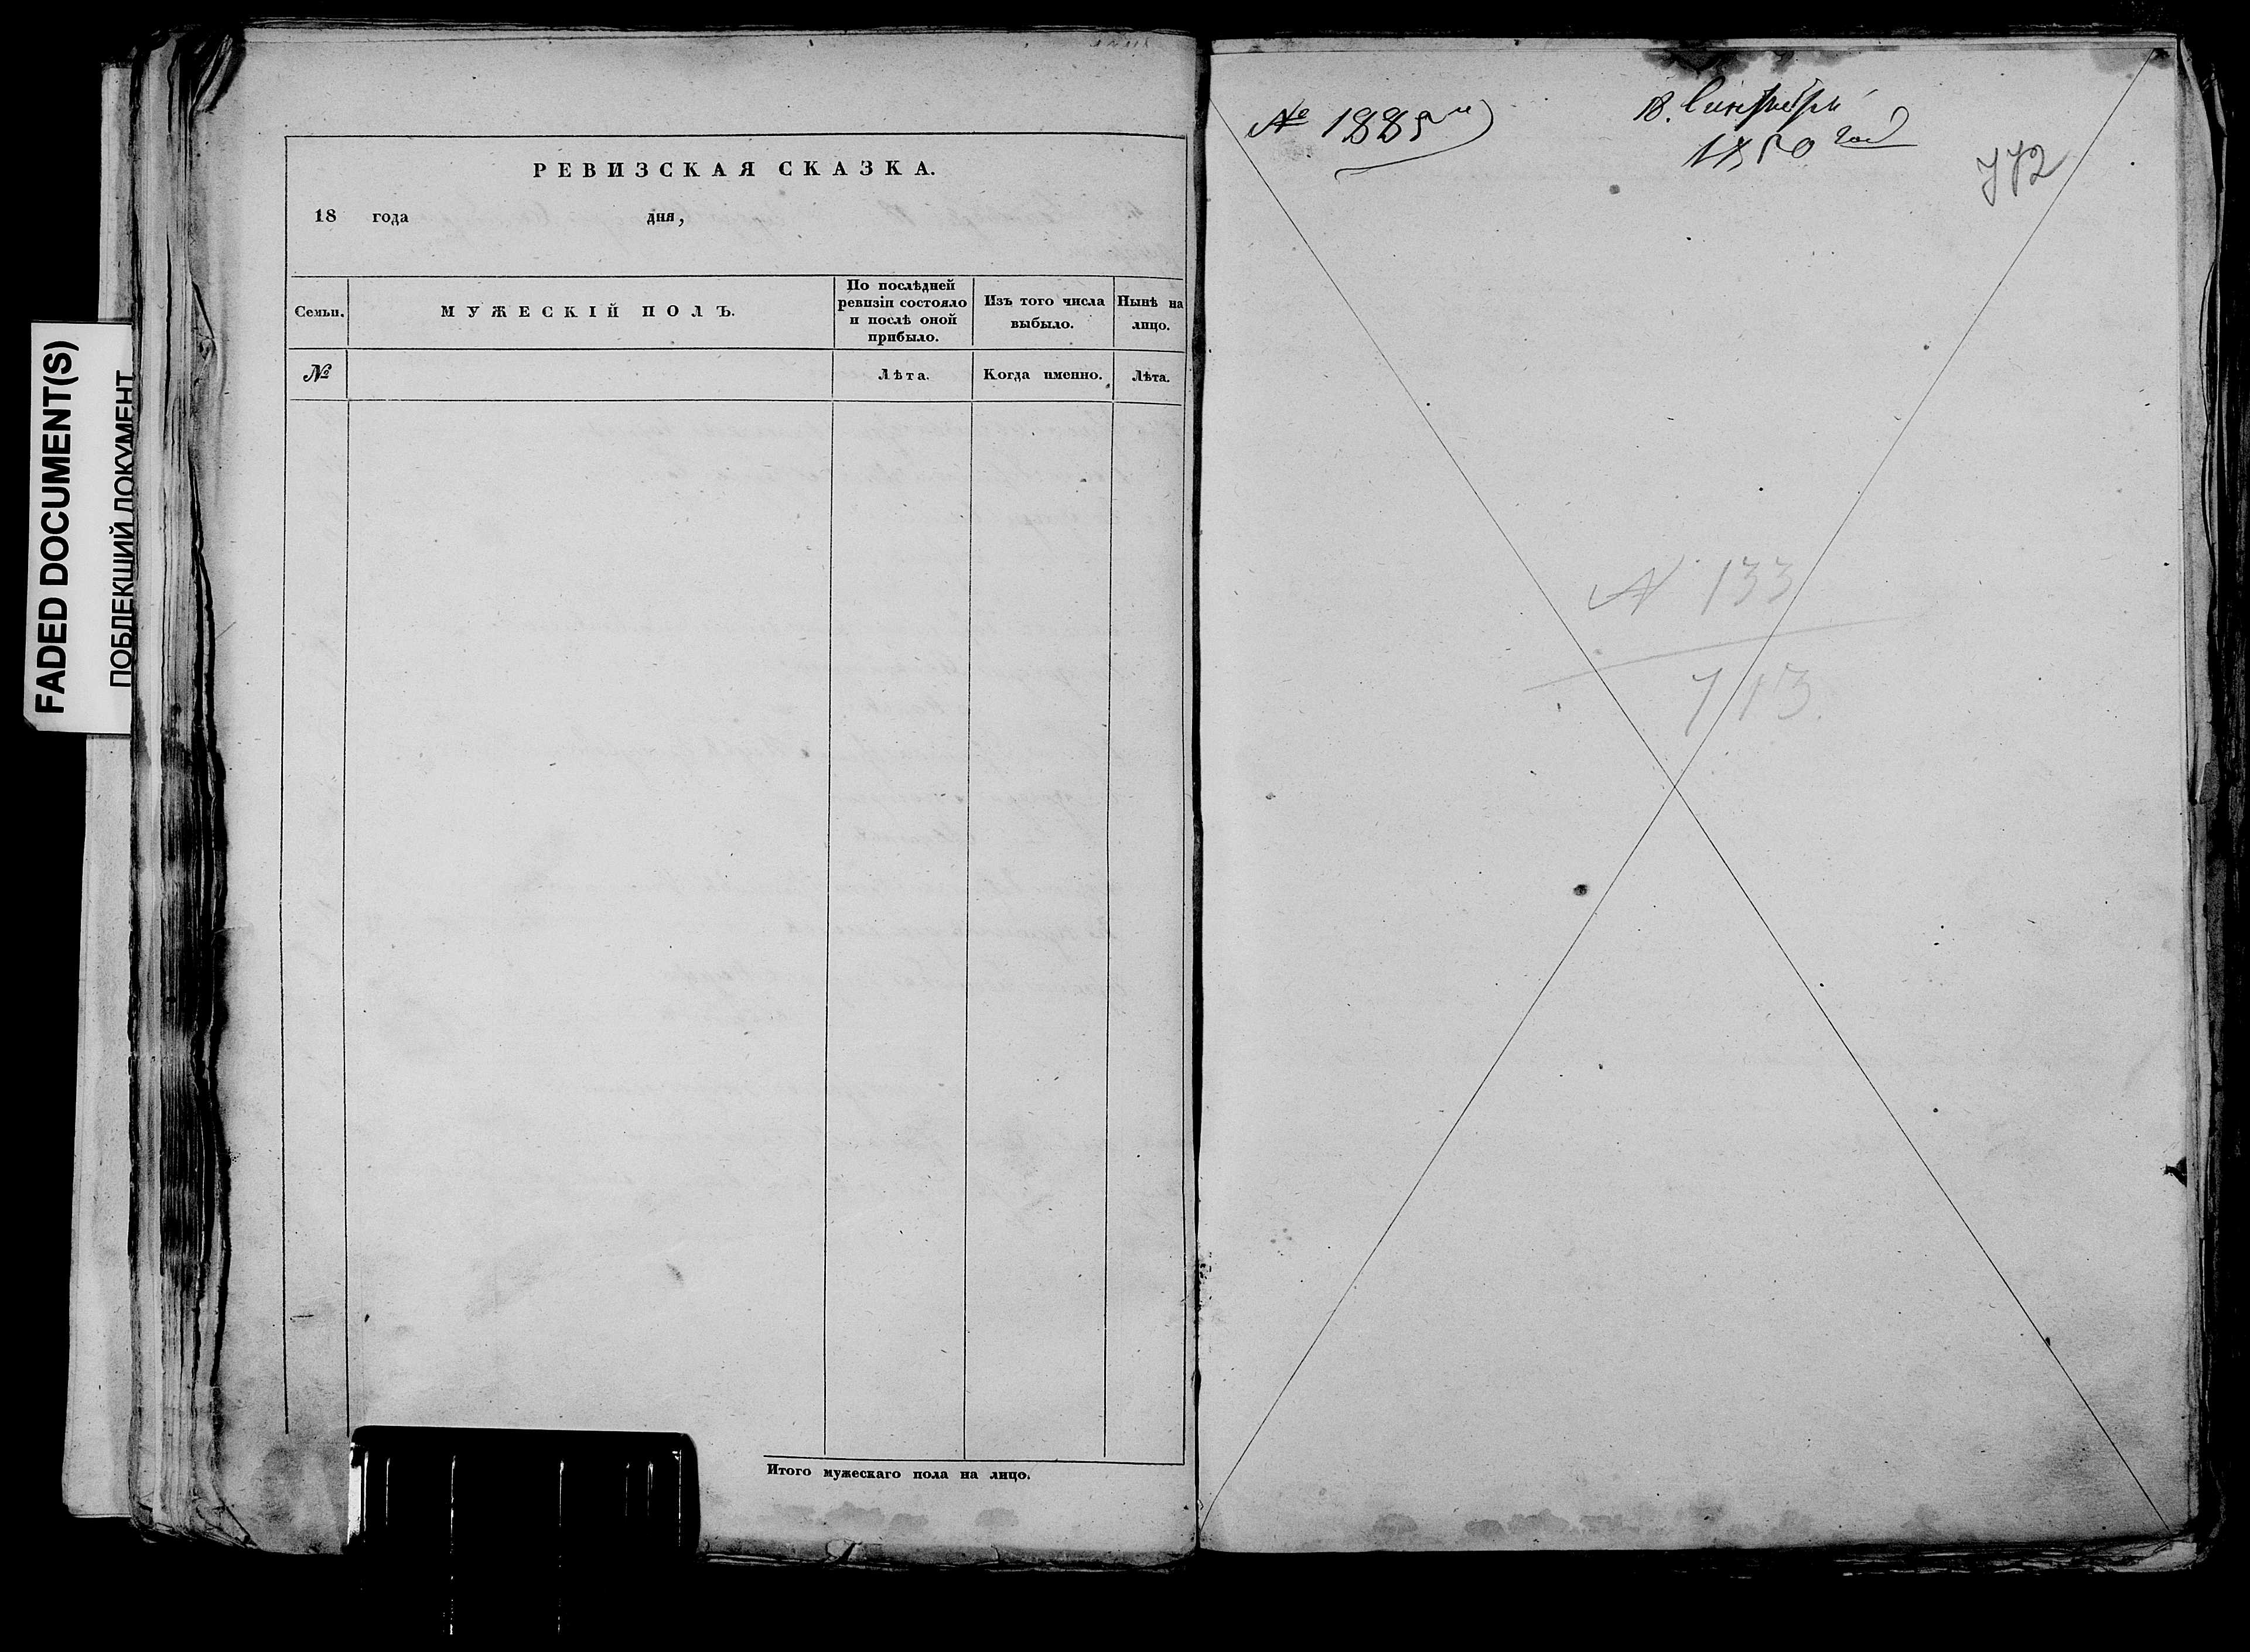 FADED DOCUMENT(S)
ПОБЛЕКШИЙ ДОКУМЕНТ
РЕВИЗСКАЯ СКАЗКА.
18 года дня,
Семьи.
МУЖЕСКІЙ ПОЛЪ.
По послѣдней
ревизіи состояло
и послѣ оной
прибыло.
Изъ того числа
выбыло.
Нынѣ на
лицо.
№
Лѣта.
Когда именно.
Лѣта.
Итого мужескаго пола на лицо.
№ 1885
18. Сентября
1850 года
772
№ 133
713.